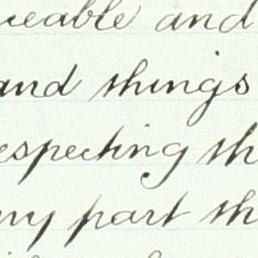 eable and
and things
especting th
ny part th